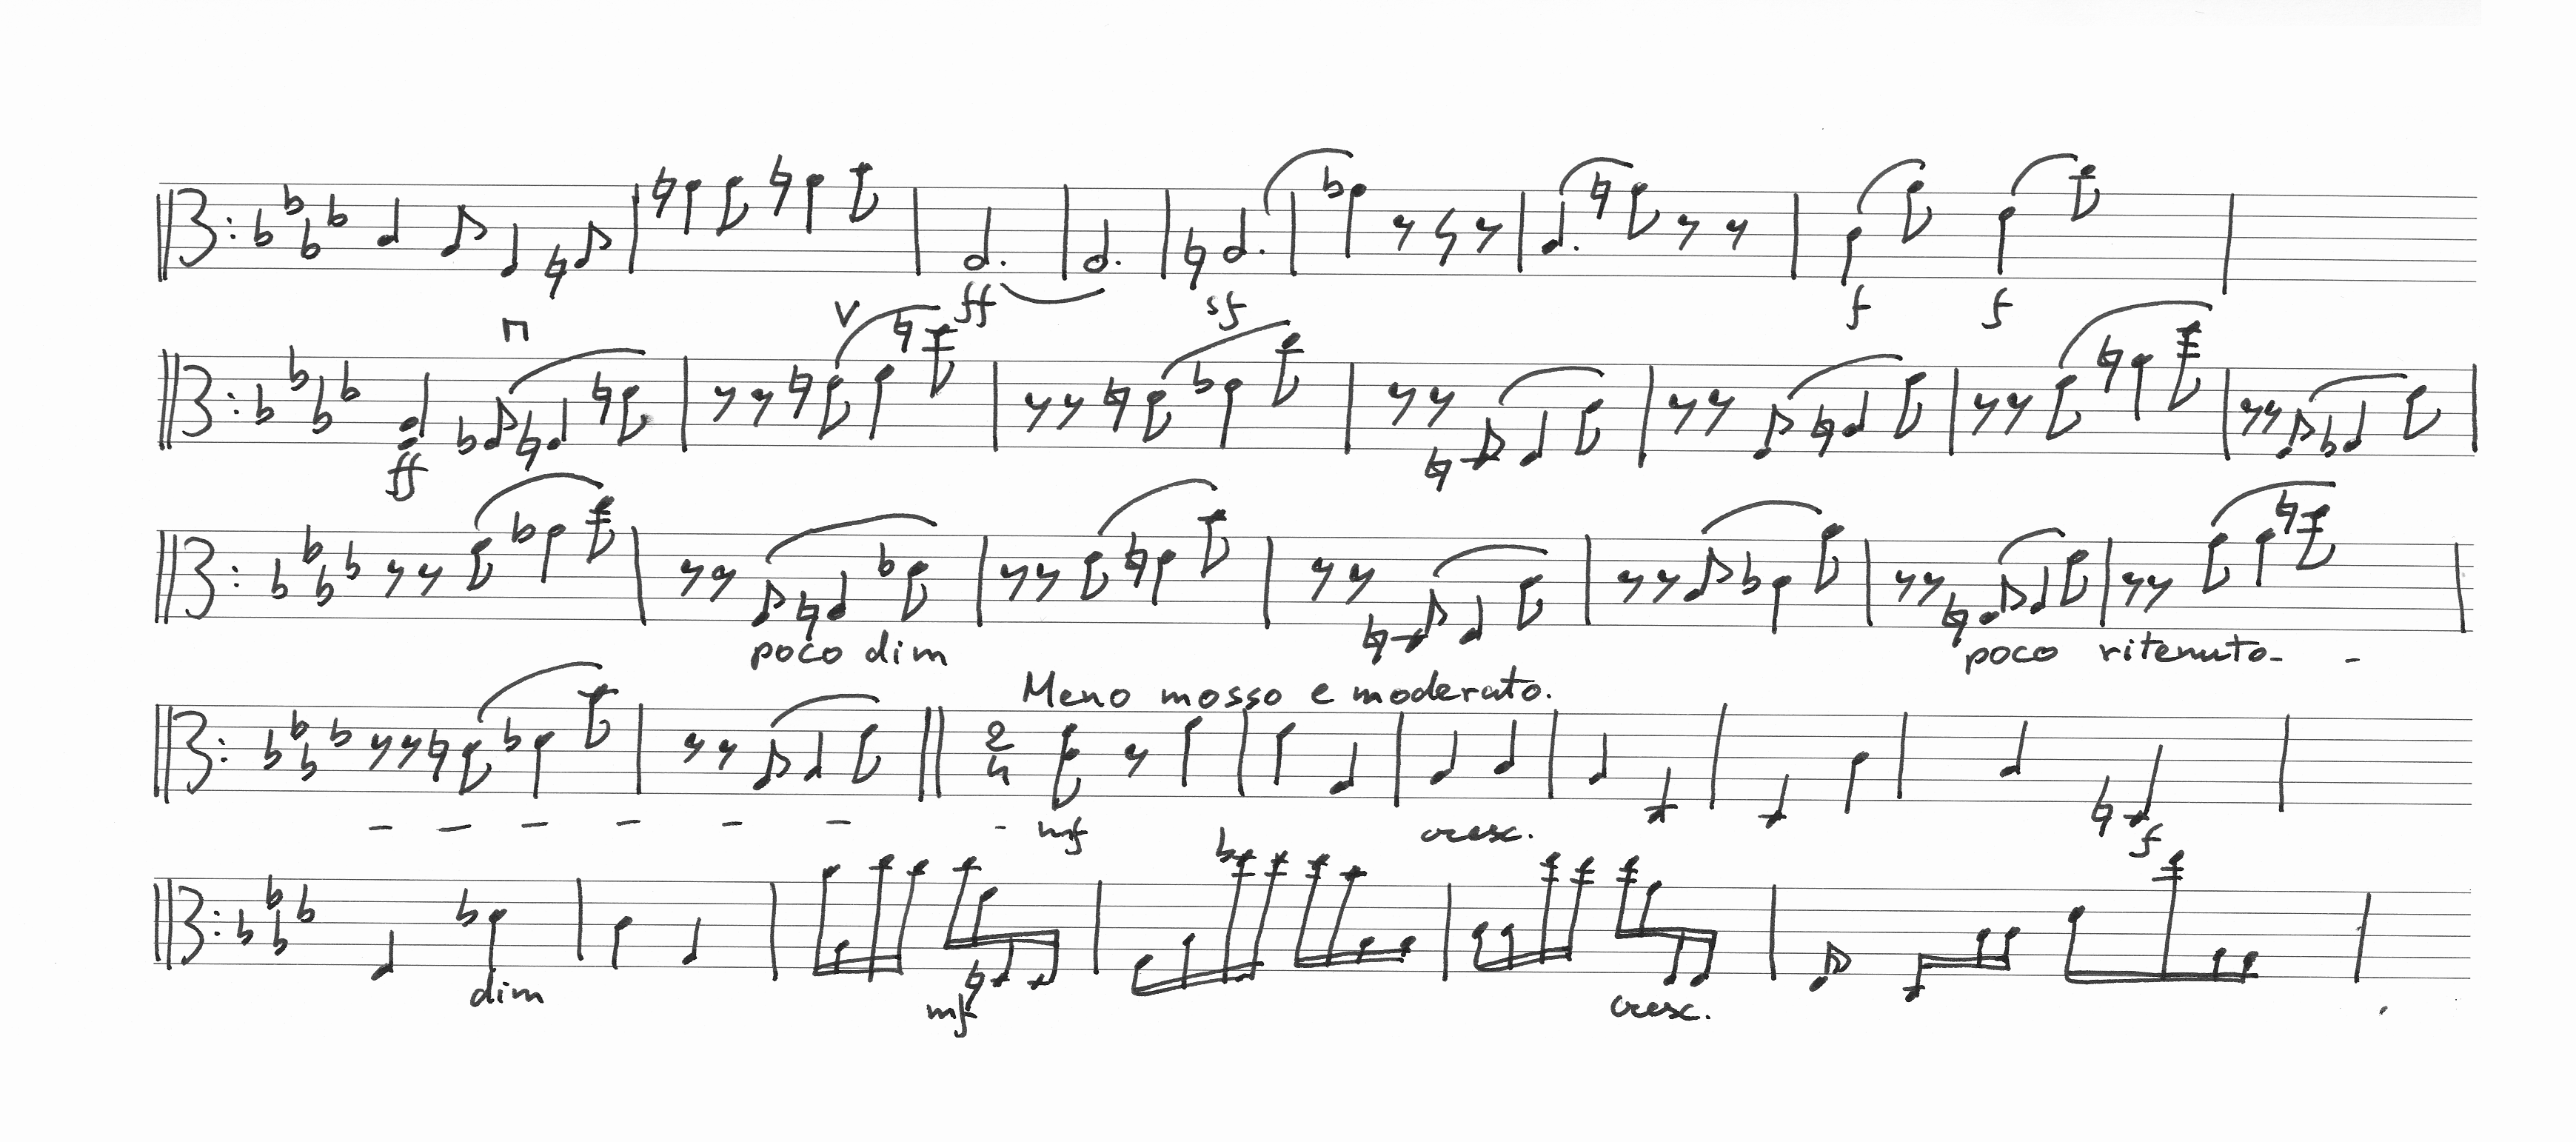 ff sf f f
ff
poco dim poco ritenuto- -
Meno mosso e moderato.
2
4
mf cresc. f
dim mf cresc.